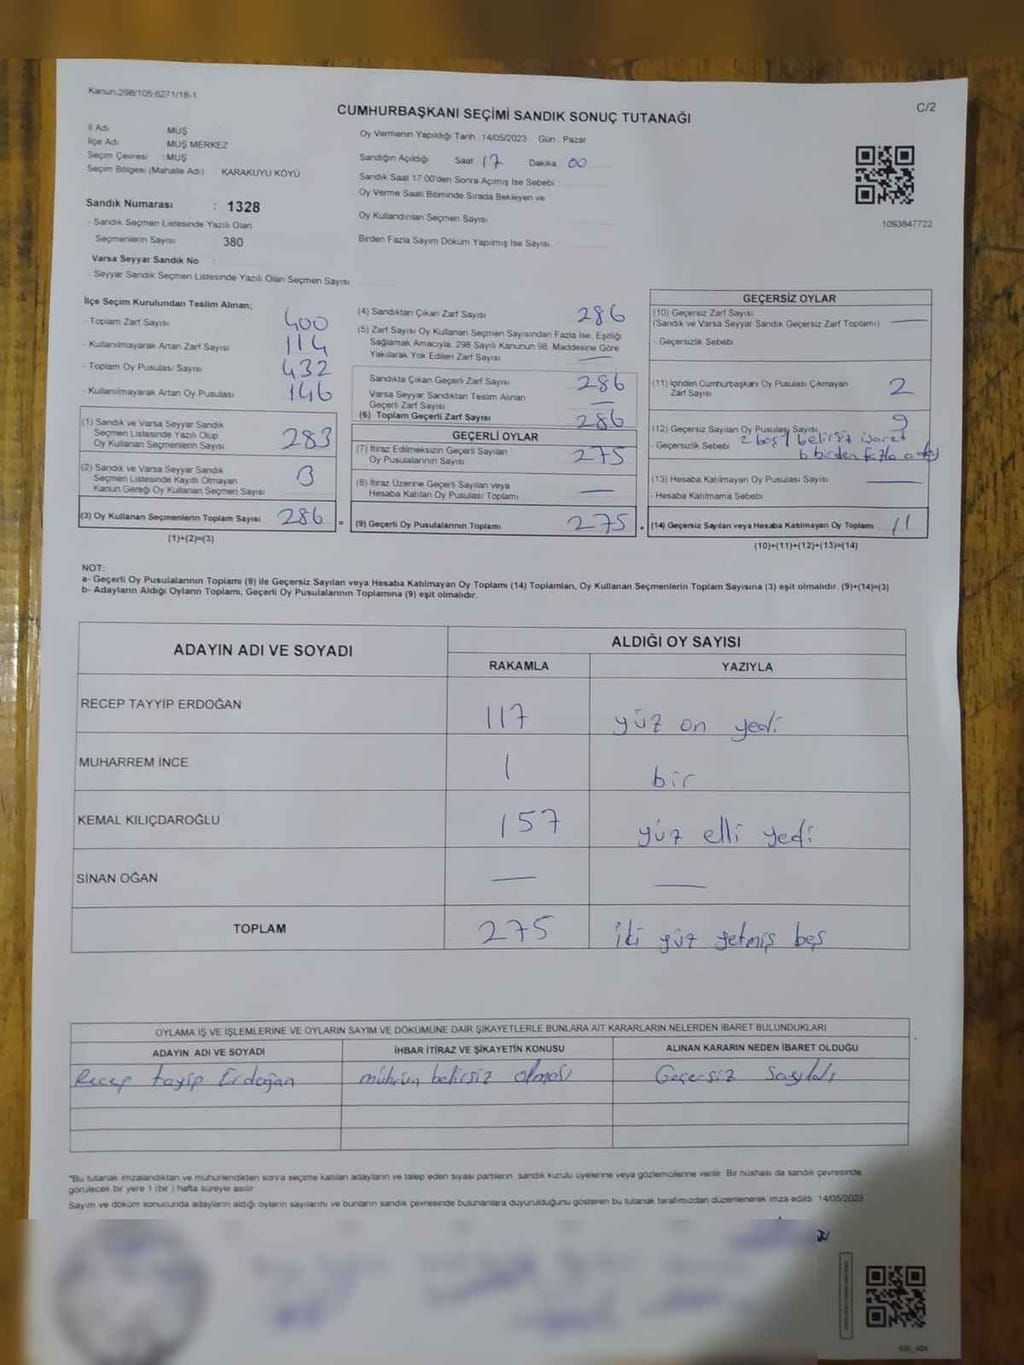 Kanun.298/105.6271/18-1
C/2
CUMHURBAŞKANI SEÇİMİ SANDIK SONUÇ TUTANAĞI
İl Adı MUŞ
İlçe Adı MUŞ MERKEZ
Seçim Çevresi : MUŞ
Seçim Bölgesi (Mahalle Adı) KARAKUYU KÖYÜ
Sandık Numarası : 1328
- Sandık Seçmen Listesinde Yazılı Olan
Seçmenlerin Sayısı : 380
Varsa Seyyar Sandık No :
- Seyyar Sandık Seçmen Listesinde Yazılı Olan Seçmen Sayısı
Oy Vermenin Yapıldığı Tarih 14/05/2023 Gün Pazar
Sandığın Açıldığı Saat 17 Dakika 00
Sandık Saat 17:00'den Sonra Açılmış İse Sebebi
Oy Verme Saati Bitiminde Sırada Bekleyen ve
Oy Kullandırılan Seçmen Sayısı
Birden Fazla Sayım Döküm Yapılmış İse Sayısı
1093847722
İlçe Seçim Kurulundan Teslim Alınan;
- Toplam Zarf Sayısı 400
- Kullanılmayarak Artan Zarf Sayısı 114
- Toplam Oy Pusulası Sayısı 432
- Kullanılmayarak Artan Oy Pusulası 146
(1) Sandık ve Varsa Seyyar Sandık
Seçmen Listesinde Yazılı Olup
Oy Kullanan Seçmenlerin Sayısı 283
(2) Sandık ve Varsa Seyyar Sandık
Seçmen Listesinde Kayıtlı Olmayan
Kanun Gereği Oy Kullanan Seçmen Sayısı 3
(3) Oy Kullanan Seçmenlerin Toplam Sayısı 286 =
(1)+(2)=(3)
(4) Sandıktan Çıkan Zarf Sayısı 286
(5) Zarf Sayısı Oy Kullanan Seçmen Sayısından Fazla İse, Eşitliği
Sağlamak Amacıyla, 298 Sayılı Kanunun 98. Maddesine Göre
Yakılarak Yok Edilen Zarf Sayısı —
Sandıkta Çıkan Geçerli Zarf Sayısı 286
Varsa Seyyar Sandıktan Teslim Alınan
Geçerli Zarf Sayısı —
(6) Toplam Geçerli Zarf Sayısı 286
GEÇERLİ OYLAR
(7) İtiraz Edilmeksizin Geçerli Sayılan
Oy Pusulalarının Sayısı 275
(8) İtiraz Üzerine Geçerli Sayılan veya
Hesaba Katılan Oy Pusulası Toplamı —
(9) Geçerli Oy Pusulalarının Toplamı 275 +
GEÇERSİZ OYLAR
(10) Geçersiz Zarf Sayısı
(Sandık ve Varsa Seyyar Sandık Geçersiz Zarf Toplamı) —
- Geçersizlik Sebebi
(11) İçinden Cumhurbaşkanı Oy Pusulası Çıkmayan
Zarf Sayısı 2
(12) Geçersiz Sayılan Oy Pusulası Sayısı 9
- Geçersizlik Sebebi 2 boş 1 belirsiz işaret
6 birden fazla
(13) Hesaba Katılmayan Oy Pusulası Sayısı —
- Hesaba Katılmama Sebebi
(14) Geçersiz Sayılan veya Hesaba Katılmayan Oy Toplamı 11
(10)+(11)+(12)+(13)=(14)
NOT:
a- Geçerli Oy Pusulalarının Toplamı (9) ile Geçersiz Sayılan veya Hesaba Katılmayan Oy Toplamı (14) Toplamları, Oy Kullanan Seçmenlerin Toplam Sayısına (3) eşit olmalıdır. (9)+(14)=(3)
b- Adayların Aldığı Oyların Toplamı, Geçerli Oy Pusulalarının Toplamına (9) eşit olmalıdır.
ADAYIN ADI VE SOYADI
ALDIĞI OY SAYISI
RAKAMLA YAZIYLA
RECEP TAYYİP ERDOĞAN 117 yüz on yedi
MUHARREM İNCE 1 bir
KEMAL KILIÇDAROĞLU 157 yüz elli yedi
SİNAN OĞAN — —
TOPLAM 275 iki yüz yetmiş beş
OYLAMA İŞ VE İŞLEMLERİNE VE OYLARIN SAYIM VE DÖKÜMÜNE DAİR ŞİKAYETLERLE BUNLARA AİT KARARLARIN NELERDEN İBARET BULUNDUKLARI
ADAYIN ADI VE SOYADI İHBAR İTİRAZ VE ŞİKAYETİN KONUSU ALINAN KARARIN NEDEN İBARET OLDUĞU
Recep tayip Erdoğan mührün belirsiz olması Geçersiz Sayıldı
*Bu tutanak imzalandıktan ve mühürlendikten sonra seçime katılan adayların ve talep eden siyasi partilerin sandık kurulu üyelerine veya gözlemcilerine verilir. Bir nüshası da sandık çevresinde
görülecek bir yere 1 (bir) hafta süreyle asılır
Sayım ve döküm sonucunda adayların aldığı oyların sayılarını ve bunların sandık çevresinde bulunanlara duyurulduğunu gösteren bu tutanak tarafımızdan düzenlenerek imza edildi. 14/05/2023